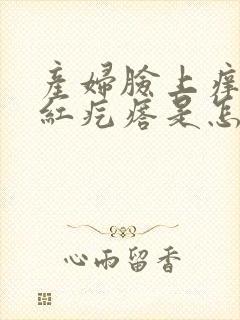 產婦臉上痒
紅疙瘩是怎
心雨留香